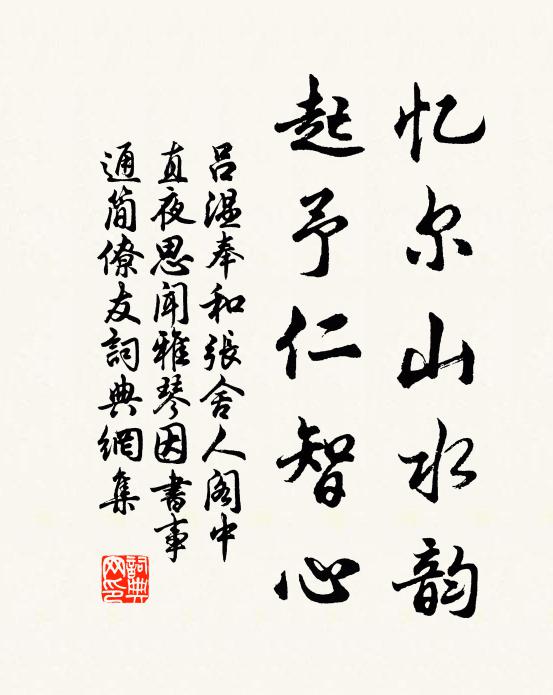 忆尔山水韵
起予仁智心
吕温奉和张舍人阁中
直夜思闻雅琴因书事
通简僚友词典网集
詞典网印